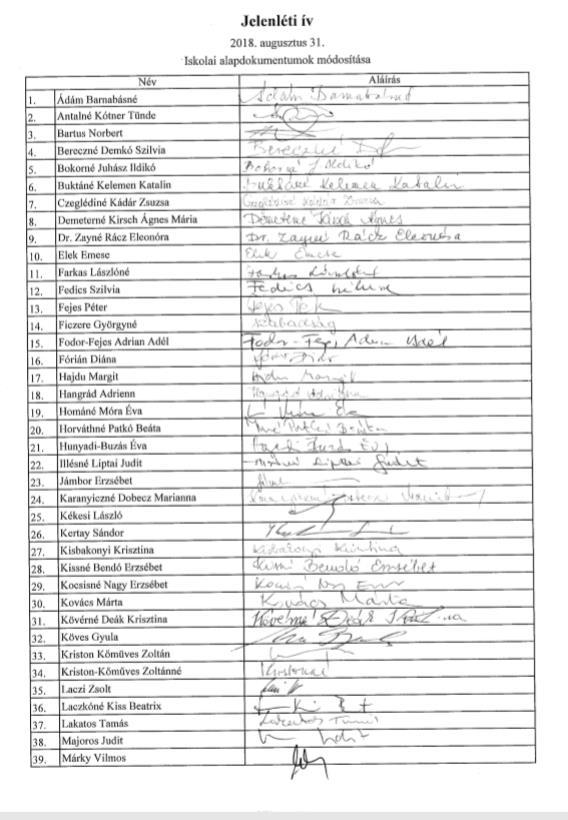 Jelenléti ív
2018. augusztus 31.
Iskolai alapdokumentumok módosítása
Név Aláírás
1. Ádám Barnabásné Ádám Barnabásné
2. Antalné Kótner Tünde
3. Bartus Norbert
4. Bereczné Demkó Szilvia Bereczné
5. Bokorné Juhász Ildikó Bokorné J Ildikó
6. Buktáné Kelemen Katalin Buktáné Kelemen Katalin
7. Czeglédiné Kádár Zsuzsa Czeglédiné Kádár Zsuzsa
8. Demeterné Kirsch Ágnes Mária Demeterné Kirsch Ágnes
9. Dr. Zayné Rácz Eleonóra Dr. Zayné Rácz Eleonóra
10. Elek Emese Elek Emese
11. Farkas Lászlóné Farkas Lászlóné
12. Fedics Szilvia Fedics Szilvia
13. Fejes Péter
14. Ficzere Györgyné szabadság
15. Fodor-Fejes Adrian Adél Fodor-Fejes Adrian Adél
16. Fórián Diána
17. Hajdu Margit Hajdu Margit
18. Hangrád Adrienn
19. Hománé Móra Éva
20. Horváthné Patkó Beáta
21. Hunyadi-Buzás Éva
22. Illésné Liptai Judit Illésné Liptai Judit
23. Jámbor Erzsébet
24. Karanyiczné Dobecz Marianna
25. Kékesi László
26. Kertay Sándor
27. Kisbakonyi Krisztina Kisbakonyi Krisztina
28. Kissné Bendó Erzsébet Kissné Bendó Erzsébet
29. Kocsisné Nagy Erzsébet
30. Kovács Márta Kovács Márta
31. Kövérné Deák Krisztina Kövérné Deák
32. Köves Gyula
33. Kriston Kőműves Zoltán
34. Kriston-Kőműves Zoltánné
35. Laczi Zsolt
36. Laczkóné Kiss Beatrix
37. Lakatos Tamás Lakatos Tamás
38. Majoros Judit
39. Márky Vilmos